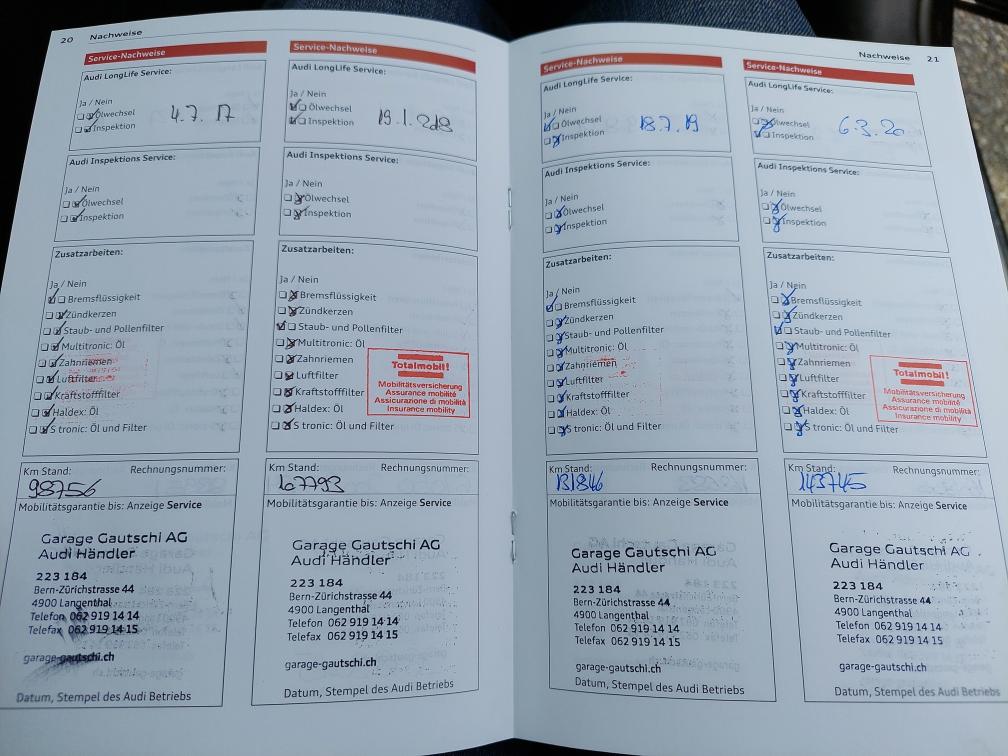 20 Nachweise
Service-Nachweise
Audi LongLife Service:
Ja / Nein
Ölwechsel
Inspektion
4.7. 17
Audi Inspektions Service:
Ja / Nein
Ölwechsel
Inspektion
Zusatzarbeiten:
Ja / Nein
Bremsflüssigkeit
Zündkerzen
Staub- und Pollenfilter
Multitronic: Öl
Zahnriemen
Luftfilter
Kraftstofffilter
Haldex: Öl
S tronic: Öl und Filter
Km Stand: Rechnungsnummer:
98756
Mobilitätsgarantie bis: Anzeige Service
Garage Gautschi AG
Audi Händler
223 184
Bern-Zürichstrasse 44
4900 Langenthal
Telefon 062 919 14 14
Telefax 062 919 14 15
garage-gautschi.ch
Datum, Stempel des Audi Betriebs
Service-Nachweise
Audi LongLife Service:
Ja / Nein
Ölwechsel
Inspektion
19.1.2018
Audi Inspektions Service:
Ja / Nein
Ölwechsel
Inspektion
Zusatzarbeiten:
Ja / Nein
Bremsflüssigkeit
Zündkerzen
Staub- und Pollenfilter
Multitronic: Öl
Zahnriemen
Luftfilter
Kraftstofffilter
Haldex: Öl
S tronic: Öl und Filter
Totalmobil!
Mobilitätsversicherung
Assurance mobilité
Assicurazione di mobilità
Insurance mobility
Km Stand: Rechnungsnummer:
107793
Mobilitätsgarantie bis: Anzeige Service
Garage Gautschi AG
Audi Händler
223 184
Bern-Zürichstrasse 44
4900 Langenthal
Telefon 062 919 14 14
Telefax 062 919 14 15
garage-gautschi.ch
Datum, Stempel des Audi Betriebs
Nachweise 21
Service-Nachweise
Audi LongLife Service:
Ja / Nein
Ölwechsel
Inspektion
18.7.19
Audi Inspektions Service:
Ja / Nein
Ölwechsel
Inspektion
Zusatzarbeiten:
Ja / Nein
Bremsflüssigkeit
Zündkerzen
Staub- und Pollenfilter
Multitronic: Öl
Zahnriemen
Luftfilter
Kraftstofffilter
Haldex: Öl
S tronic: Öl und Filter
Km Stand: Rechnungsnummer:
131846
Mobilitätsgarantie bis: Anzeige Service
Garage Gautschi AG
Audi Händler
223 184
Bern-Zürichstrasse 44
4900 Langenthal
Telefon 062 919 14 14
Telefax 062 919 14 15
garage-gautschi.ch
Datum, Stempel des Audi Betriebs
Service-Nachweise
Audi LongLife Service:
Ja / Nein
Ölwechsel
Inspektion
6.3.20
Audi Inspektions Service:
Ja / Nein
Ölwechsel
Inspektion
Zusatzarbeiten:
Ja / Nein
Bremsflüssigkeit
Zündkerzen
Staub- und Pollenfilter
Multitronic: Öl
Zahnriemen
Luftfilter
Kraftstofffilter
Haldex: Öl
S tronic: Öl und Filter
Totalmobil!
Mobilitätsversicherung
Assurance mobilité
Assicurazione di mobilità
Insurance mobility
Km Stand: Rechnungsnummer:
143745
Mobilitätsgarantie bis: Anzeige Service
Garage Gautschi AG
Audi Händler
223 184
Bern-Zürichstrasse 44
4900 Langenthal
Telefon 062 919 14 14
Telefax 062 919 14 15
garage-gautschi.ch
Datum, Stempel des Audi Betriebs